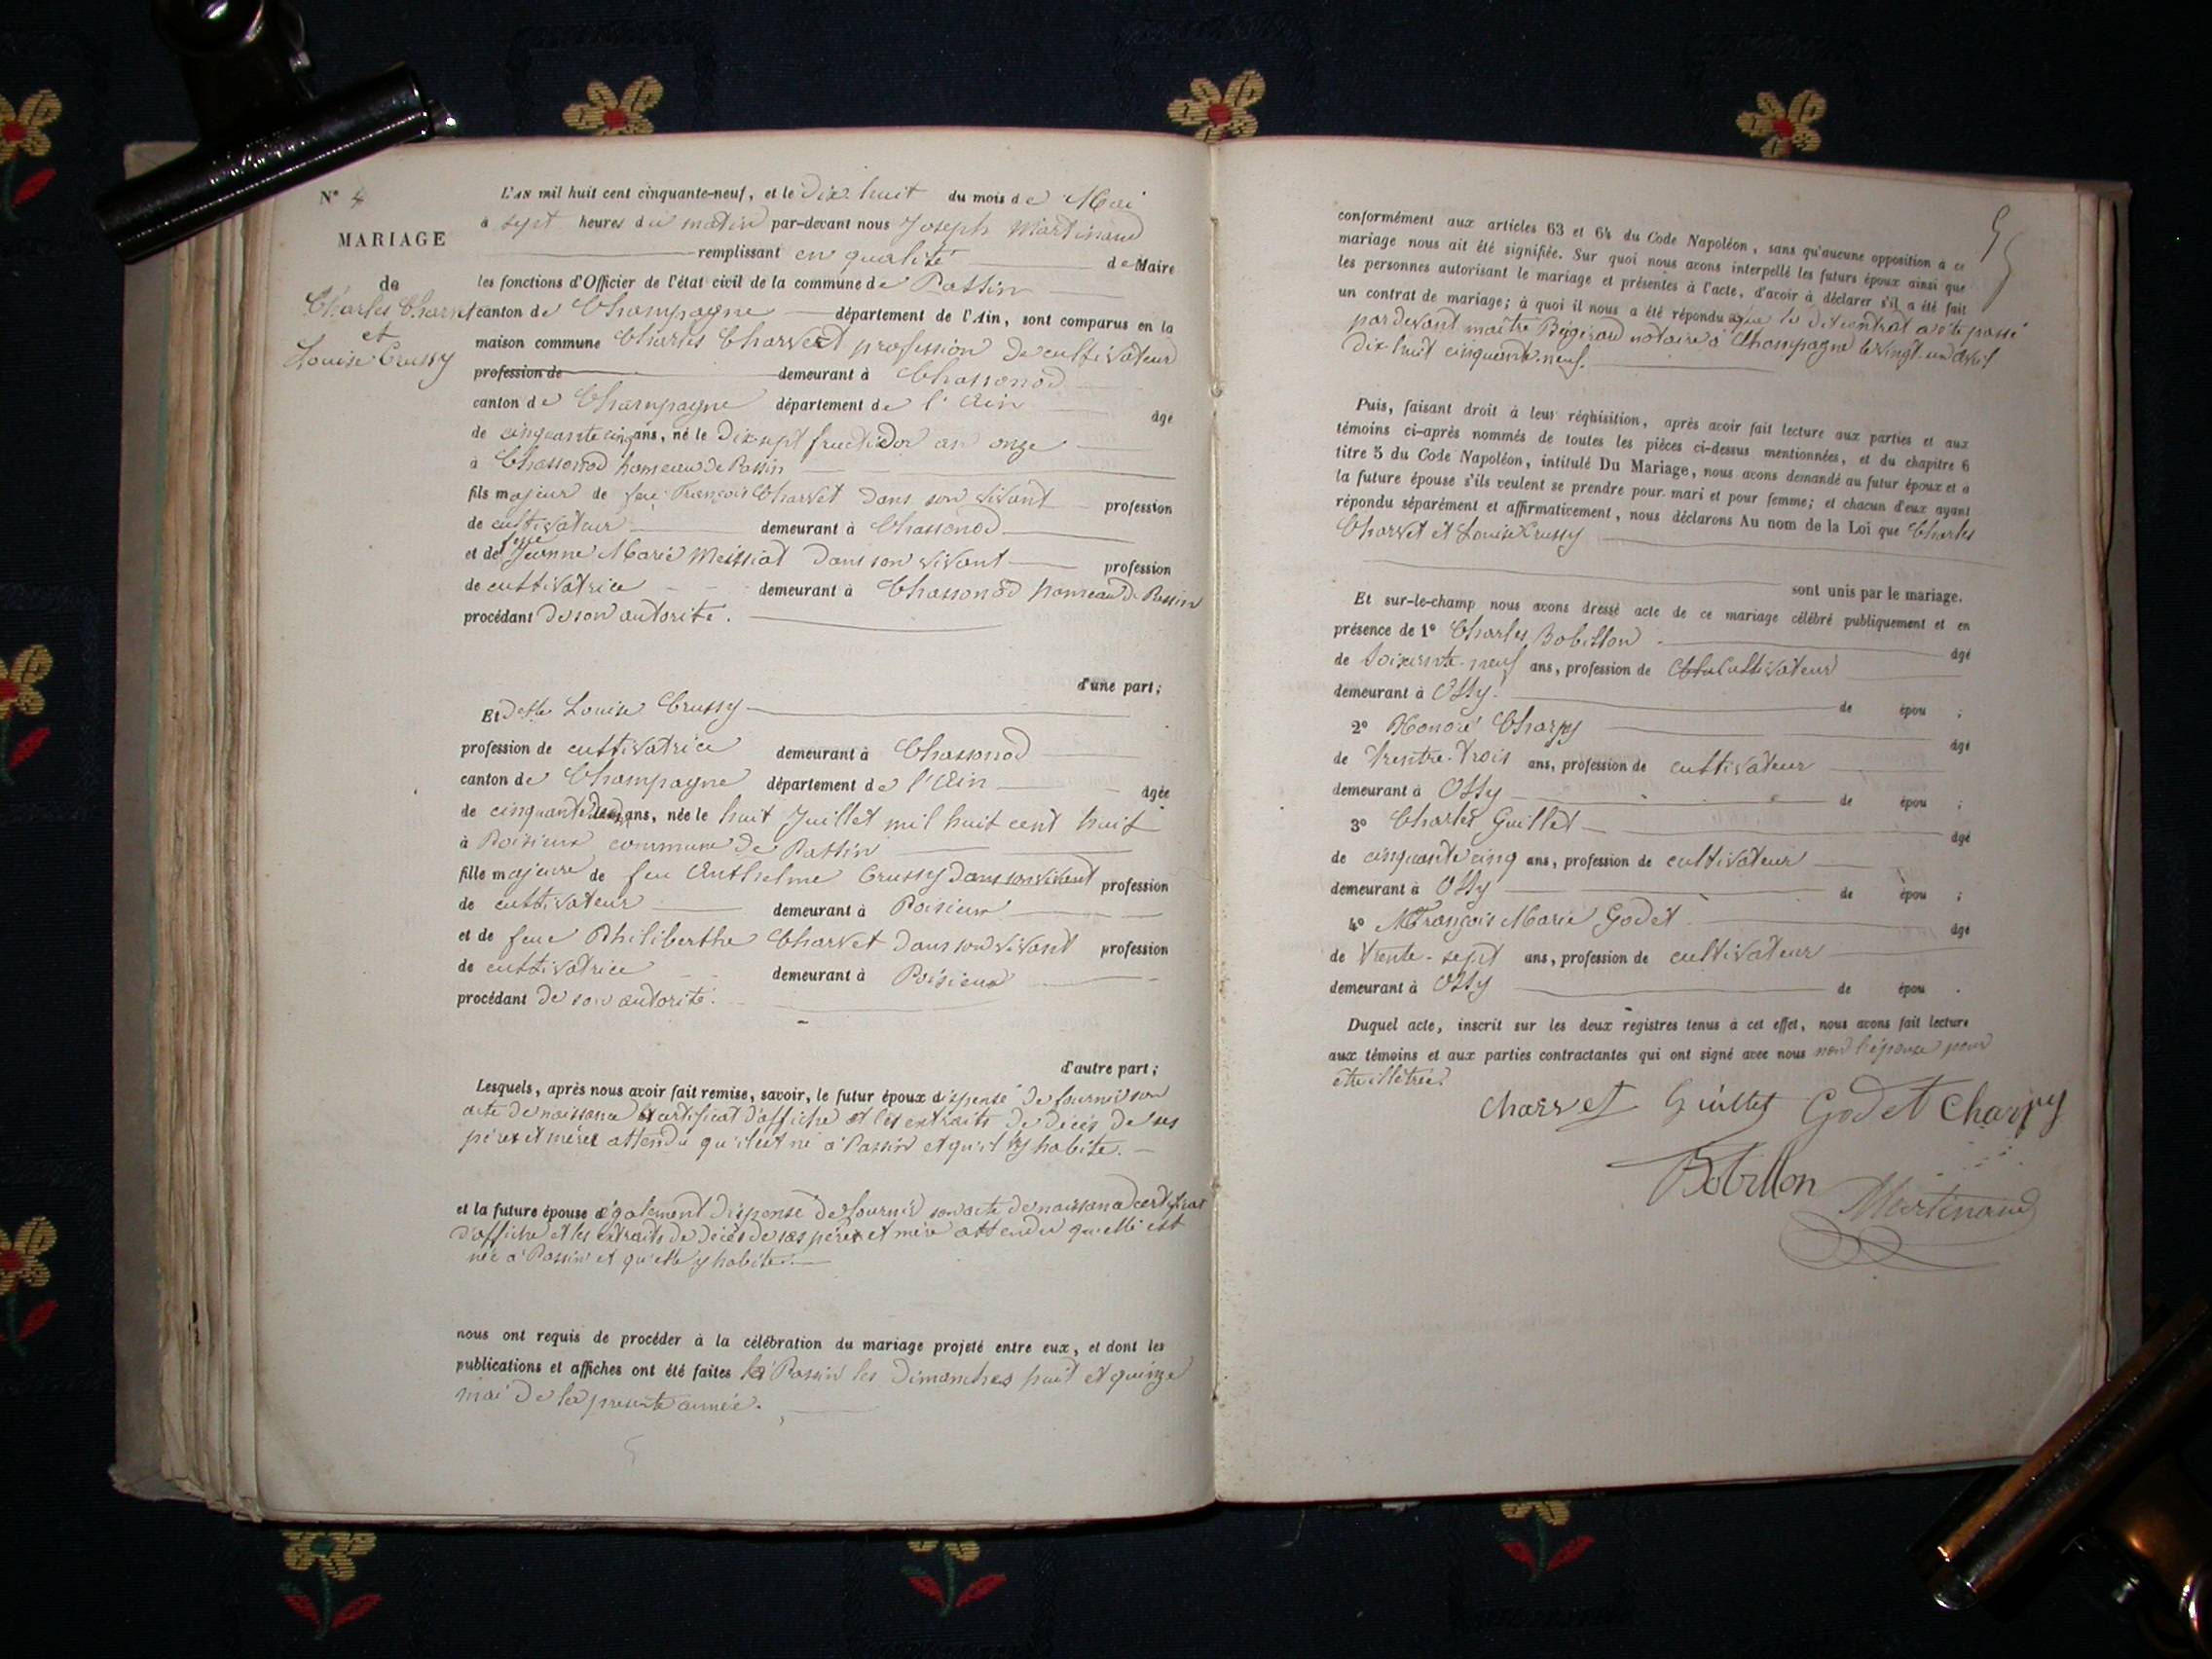 N° 4
MARIAGE
de
Charles Charvet
et
Louise Crussy
L'AN mil huit cent cinquante-neuf, et le Dix huit du mois de Mai
à sept heures du matin par-devant nous Joseph Martinand
remplissant en qualité de Maire
les fonctions d'Officier de l'état civil de la commune de Passin
canton de Champagne département de l'Ain, sont comparus en la
maison commune Charles Charvet profession de cultivateur
profession de demeurant à Chassonod
canton de Champagne département de l'Ain âgé
de cinquante cinq ans, né le Dix sept fructidor an onze
à Chassonod hameau de Passin
fils majeur de feu François Charvet dans son vivant profession
de cultivateur demeurant à Chassonod
et de feue Jeanne Marie Meissiat dans son vivant profession
de cultivatrice demeurant à Chassonod hameau de Passin
procédant de son autorité.
d'une part;
Et Delle Louise Crussy
profession de cultivatrice demeurant à Chassonod
canton de Champagne département de l'Ain âgée
de cinquante ans, née le huit Juillet mil huit cent huit
à Poisieux commune de Passin
fille majeure de feu Anthelme Crussy dans son vivant profession
de cultivateur demeurant à Poisieux
et de feue Philiberthe Charvet dans son vivant profession
de cultivatrice demeurant à Poisieux
procédant de son autorité.
d'autre part;
Lesquels, après nous avoir fait remise, savoir, le futur époux dispensé de fournir son
acte de naissance certificat d'affiche et les extraits de décès de ses
pères et mères attendu qu'il est né à Passin et qu'il y habite.
et la future épouse également dispensé de fournir son acte de naissance certificat
d'affiche et les extraits de décès de ses père et mère attendu qu'elle est
née à Passin et qu'elle y habite.
nous ont requis de procéder à la célébration du mariage projeté entre eux, et dont les
publications et affiches ont été faites à Passin les dimanches huit et quinze
mai de la presente année.
conformément aux articles 63 et 64 du Code Napoléon, sans qu'aucune opposition à ce
mariage nous ait été signifiée. Sur quoi nous avons interpellé les futurs époux ainsi que
les personnes autorisant le mariage et présentes à l'acte, d'avoir à déclarer s'il a été fait
un contrat de mariage; à quoi il nous a été répondu que le dit contrat a été passé
par devant maître notaire à Champagne le vingt un avril
dix huit cinquante neuf.
Puis, faisant droit à leur réquisition, après avoir fait lecture aux parties et aux
témoins ci-après nommés de toutes les pièces ci-dessus mentionnées, et du chapitre 6
titre 5 du Code Napoléon, intitulé Du Mariage, nous avons demandé au futur époux et à
la future épouse s'ils veulent se prendre pour mari et pour femme; et chacun d'eux ayant
répondu séparément et affirmativement, nous déclarons Au nom de la Loi que Charles
Charvet et Louise Crussy
sont unis par le mariage.
Et sur-le-champ nous avons dressé acte de ce mariage célébré publiquement et en
présence de 1° Charles Bobillon âgé
de Soixante-neuf ans, profession de cultivateur
demeurant à Ossy. de épou ;
2° Honoré Charpy âgé
de Trentre-Trois ans, profession de cultivateur
demeurant à Ossy de épou ;
3° Charles Guillet âgé
de cinquante cinq ans, profession de cultivateur
demeurant à Ossy de épou ;
4° François Marie Godet âgé
de Trente-sept ans, profession de cultivateur
demeurant à Ossy de épou .
Duquel acte, inscrit sur les deux registres tenus à cet effet, nous avons fait lecture
aux témoins et aux parties contractantes qui ont signé avec nous non l'épouse pour
être illétrée.
Charvet Guillet Godet Charpy
Bobillon
Martinand